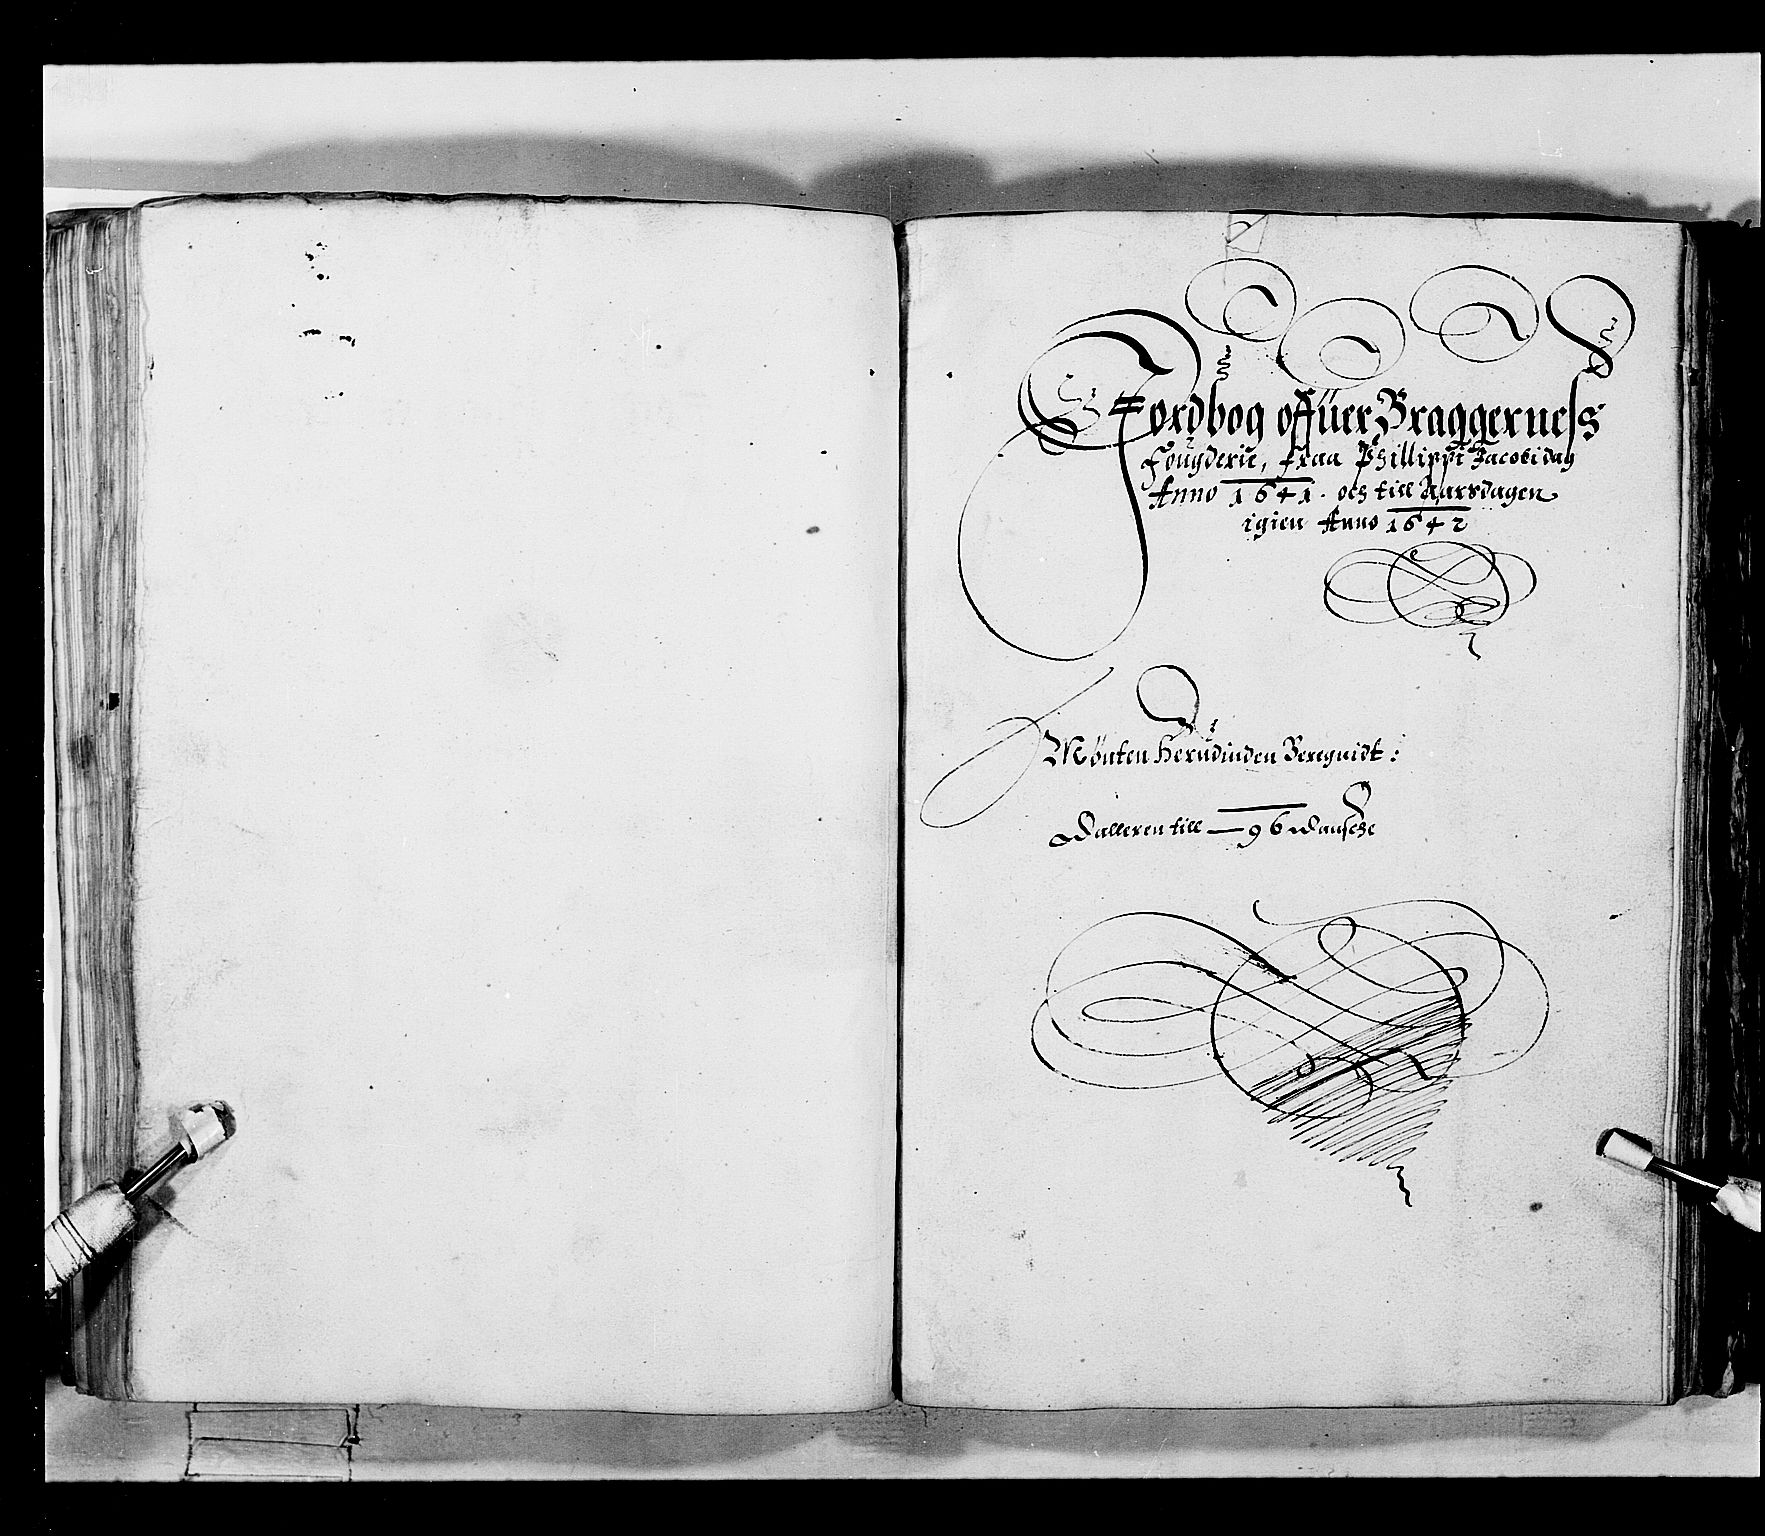 Jordbog offüer Braggerness
Fougderie, fraa Phillippi Jacobi dag
Anno 1641. och till Aarsdagen
igien Anno 1642
Mønten herudinden Beregnidt:
Dalleren till — 96 Dansche